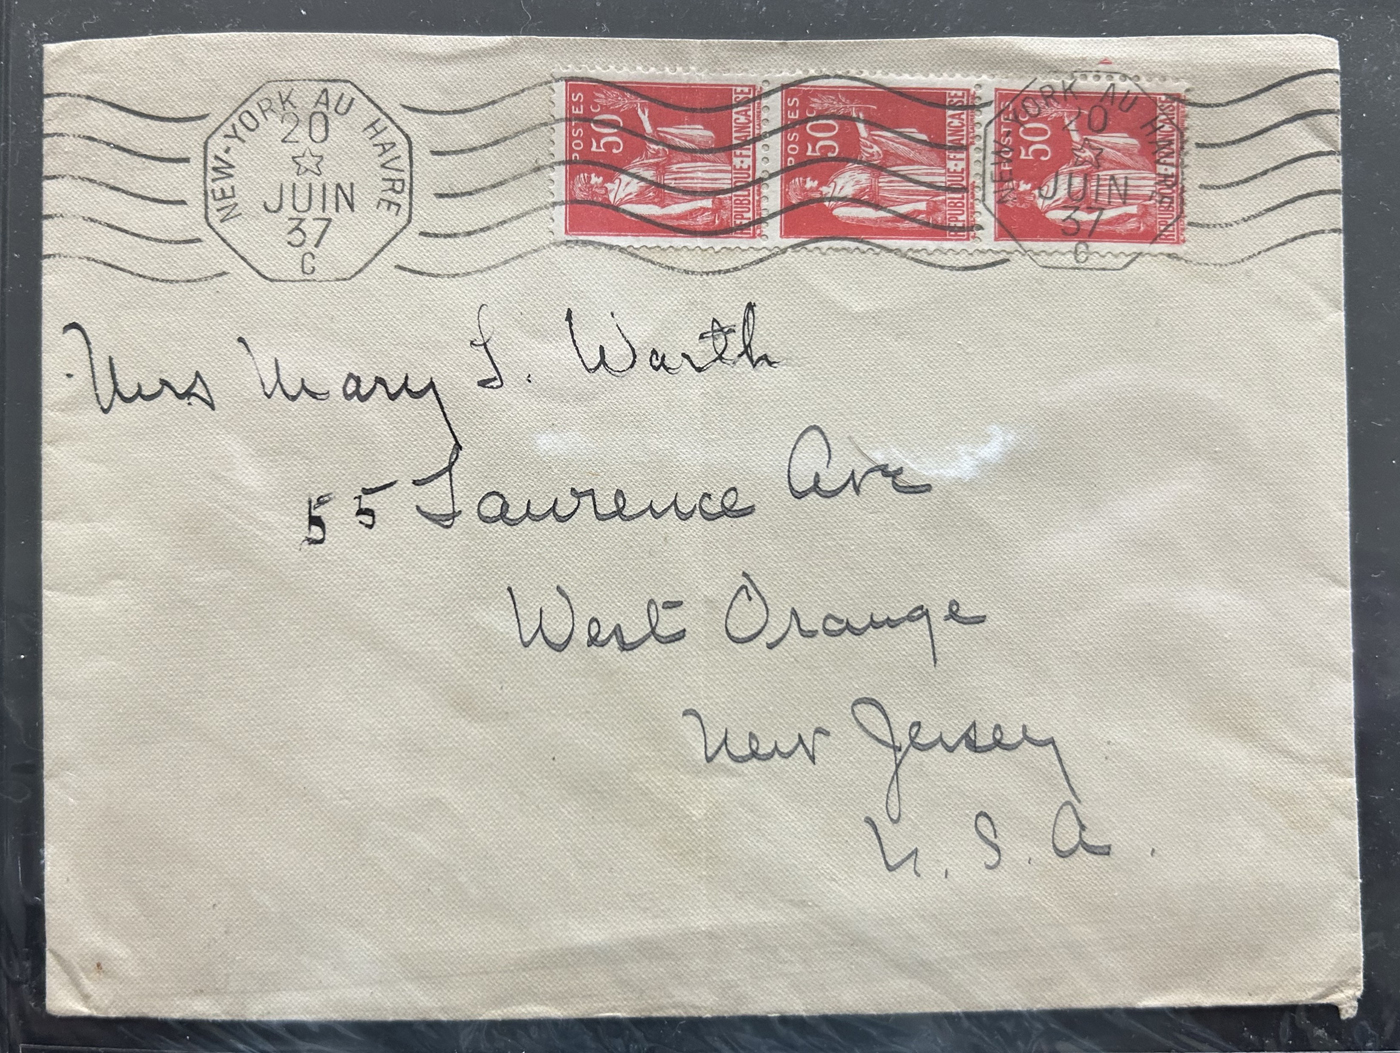 NEW-YORK AU HAVRE
20
JUIN
37
C
POSTES
50c
REPUBLIQUE-FRANCAISE
POSTES
50c
REPUBLIQUE-FRANCAISE
POSTES
50
REPUBLIQUE-FRANCAISE
NEW-YORK AU HAVRE
20
JUIN
37
C
Mrs Mary L. Warth
55 Lawrence Ave
West Orange
New Jersey
U. S. A.